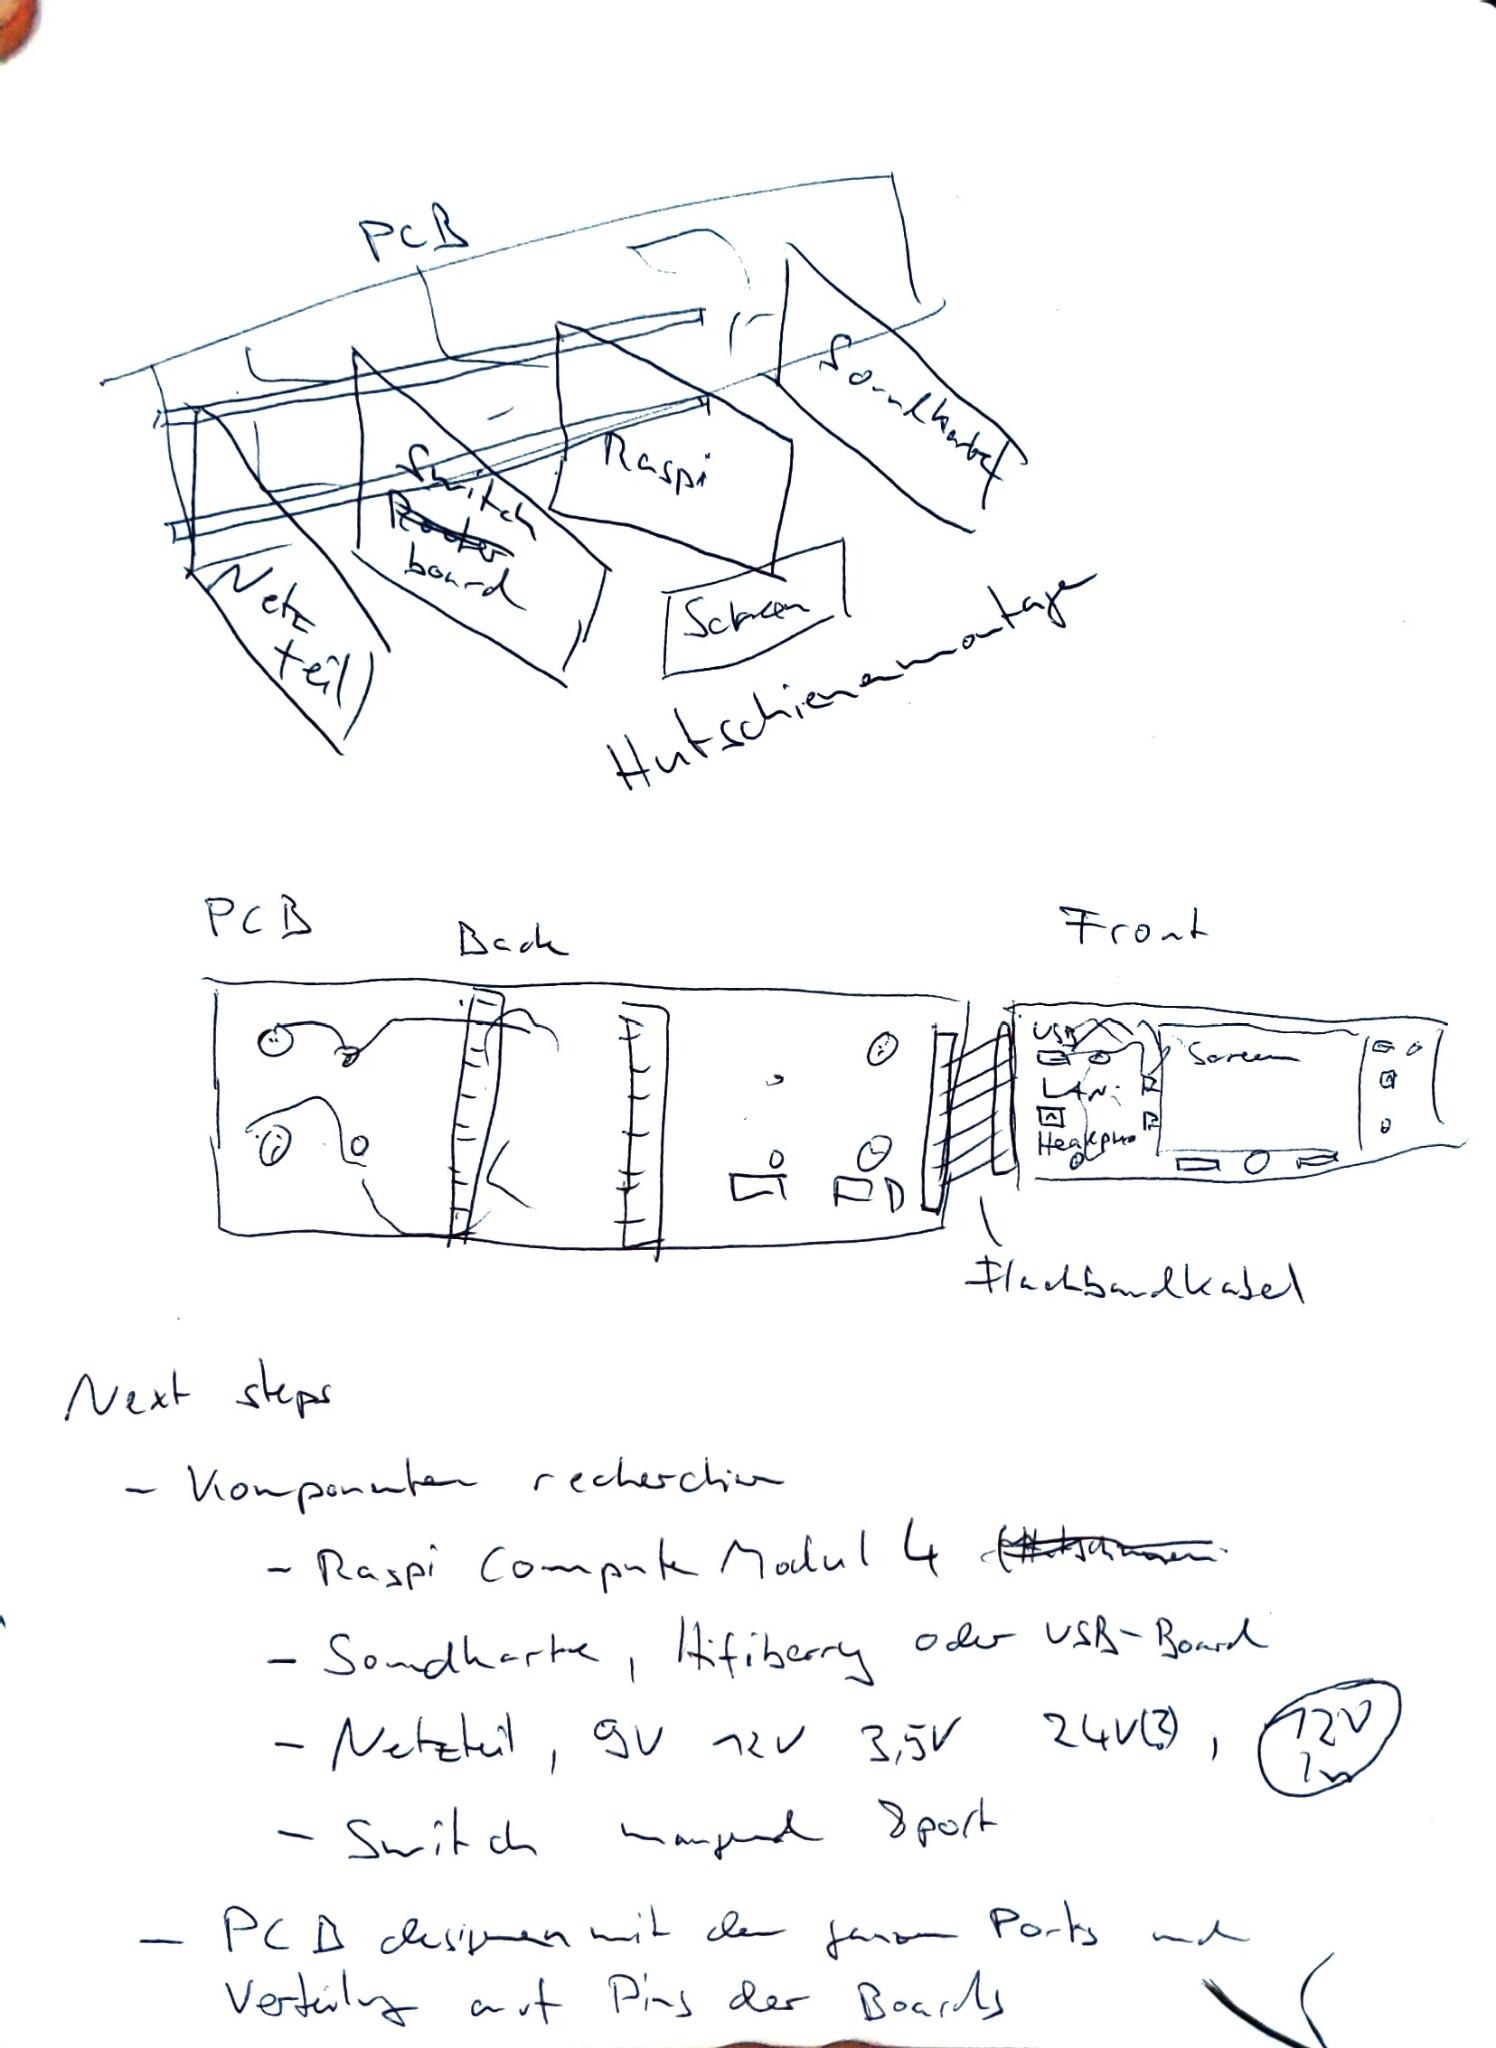 PCB
Soundkarte
Raspi
Switch
Router
board
Netz
teil
Screen
Hutschienenmontage
PCB
Back
Front
USB
Screen
LAN
Flachbandkabel
Next steps
- Komponenten recherchieren
- Raspi Compute Modul 4
- Soundkarte, Hifiberry oder USB-Board
- Netzteil, 9V 12V 3,5V 24V(?), 12V
In
- Switch managed 8port
- PCB designen mit den ganzen Ports und
Verteilung auf Pins der Boards